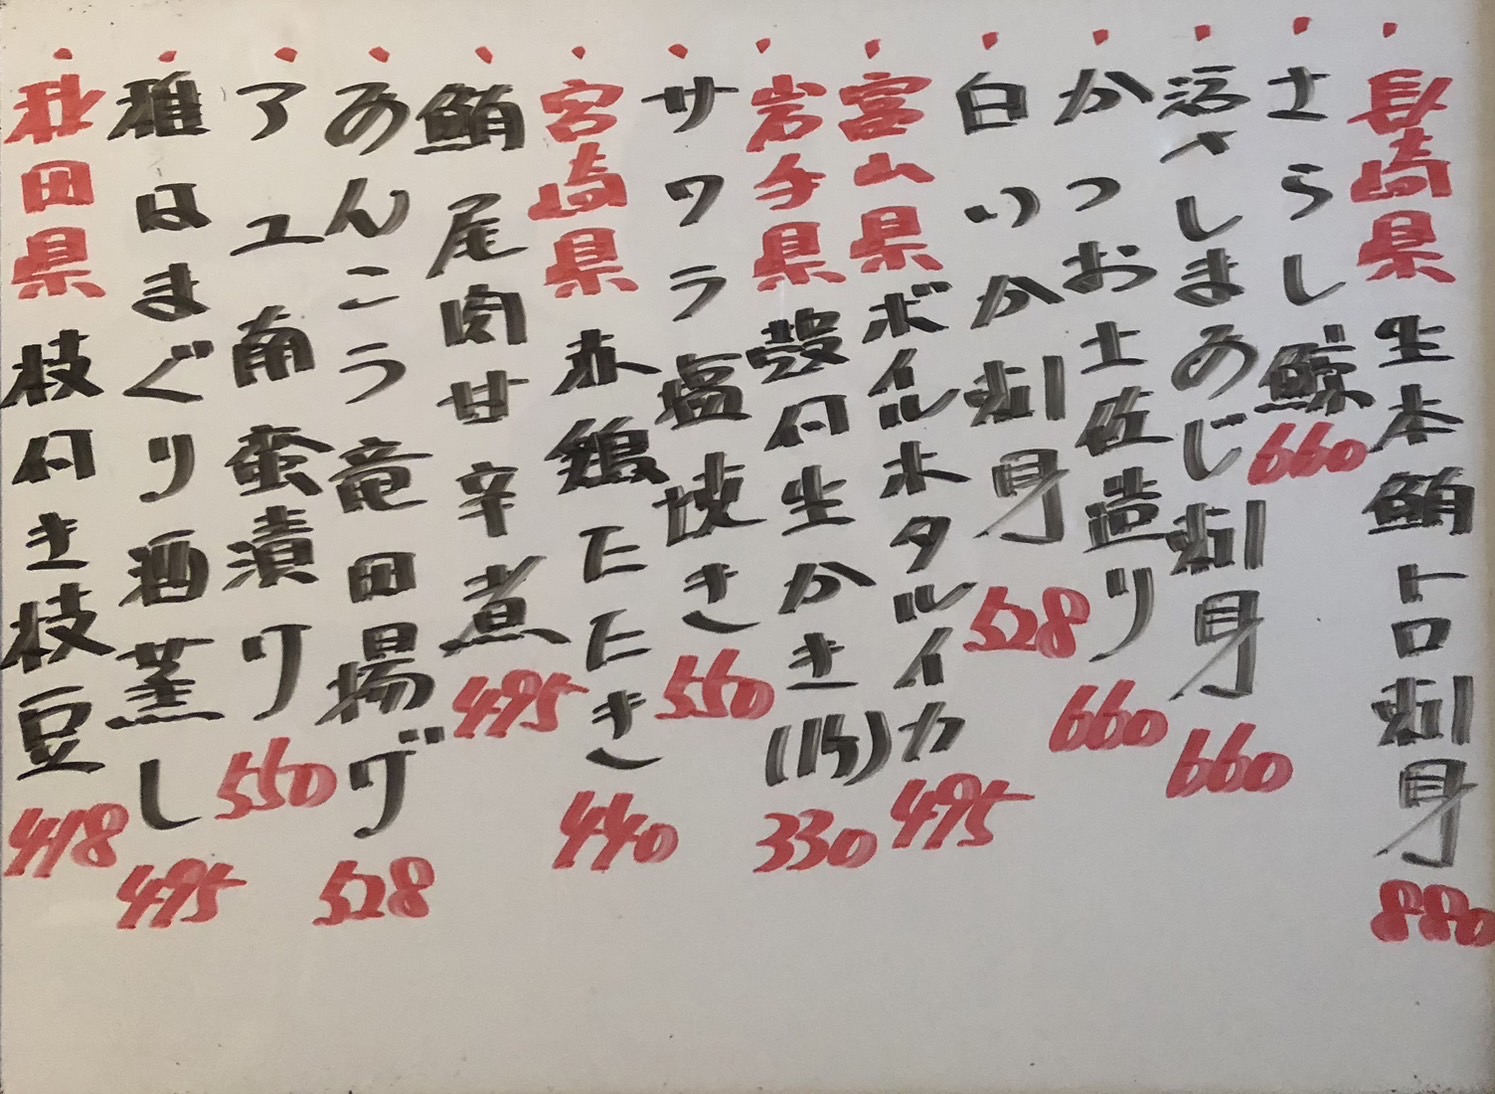 ・長崎県 生本鮪トロ刺身 880
・さらし鯨 660
・活〆しまあじ刺身 660
・かつお土佐造り 660
・白いか刺身 528
・富山県 ボイルホタルイカ 495
・岩手県 殻付生かき(1ケ) 330
・サワラ塩焼き 550
・宮崎県 赤鶏たたき 440
・鮪尾肉甘辛煮 495
・あんこう竜田揚げ 528
・アユ南蛮漬け 550
・稚はまぐり酒蒸し 495
・秋田県 枝付き枝豆 418